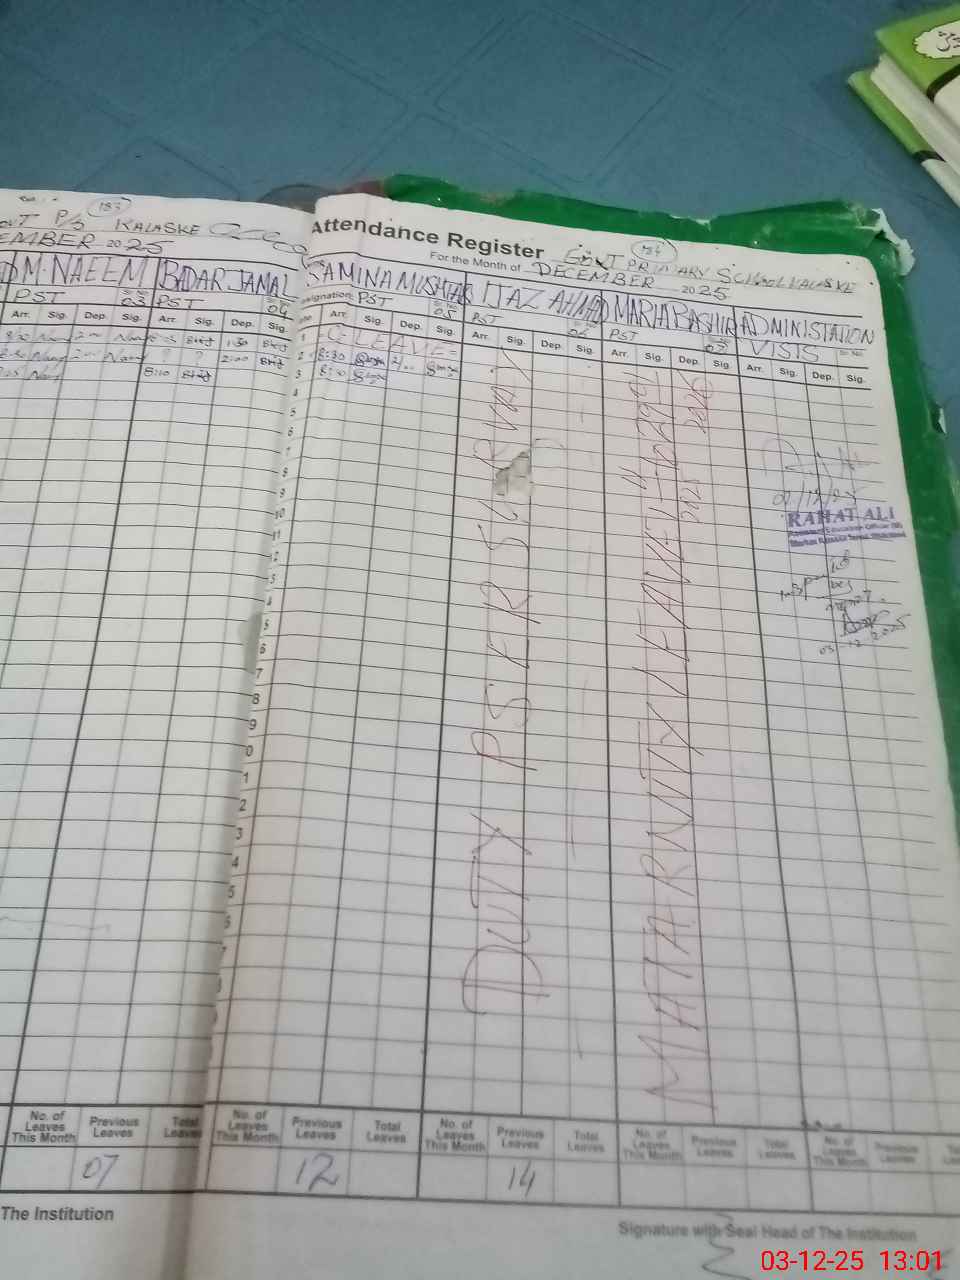 183
P/S KALASKE
EMBER 2025
M. NAEEM BADAR JAMAL
PST 03 PST 04
Arr. Sig. Dep. Sig. Arr. Sig. Dep. Sig.
8:30 2:00 1:30
8:30 2:00 ? ? 2:00
8:10
Attendance Register GOVT PRIMARY SCHOOL KALASKE
184
For the Month of DECEMBER 2025
SAMINA MUSHTAQ IJAZ AHMAD MARIA BASHIR ADMINISTATION
VISTS
Designation: PST 05 PST 06 PST 07
Arr. Sig. Dep. Sig. Arr. Sig. Dep. Sig. Arr. Sig. Dep. Sig. Arr. Sig. Dep. Sig.
1 C. LEAVE
2 8:30 2:00
3 8:10
4
5
6
7
8
9
10
11
12
3
4
5
6
7
8
9
0
1
2
3
4
5
6
7
8
DUTY PSER SURVAY
MATARNITY LEAVE
2025
2026
02/12/25
RAHAT ALI
Assistant Education Officer
03-12-2025
No. of Leaves This Month Previous Leaves Total Leaves No. of Leaves This Month Previous Leaves Total Leaves No. of Leaves This Month Previous Leaves Total Leaves No. of Leaves This Month Previous Leaves Total Leaves No. of Leaves This Month Previous Leaves
07 12 14
The Institution
Signature with Seal Head of The Institution
03-12-25 13:01